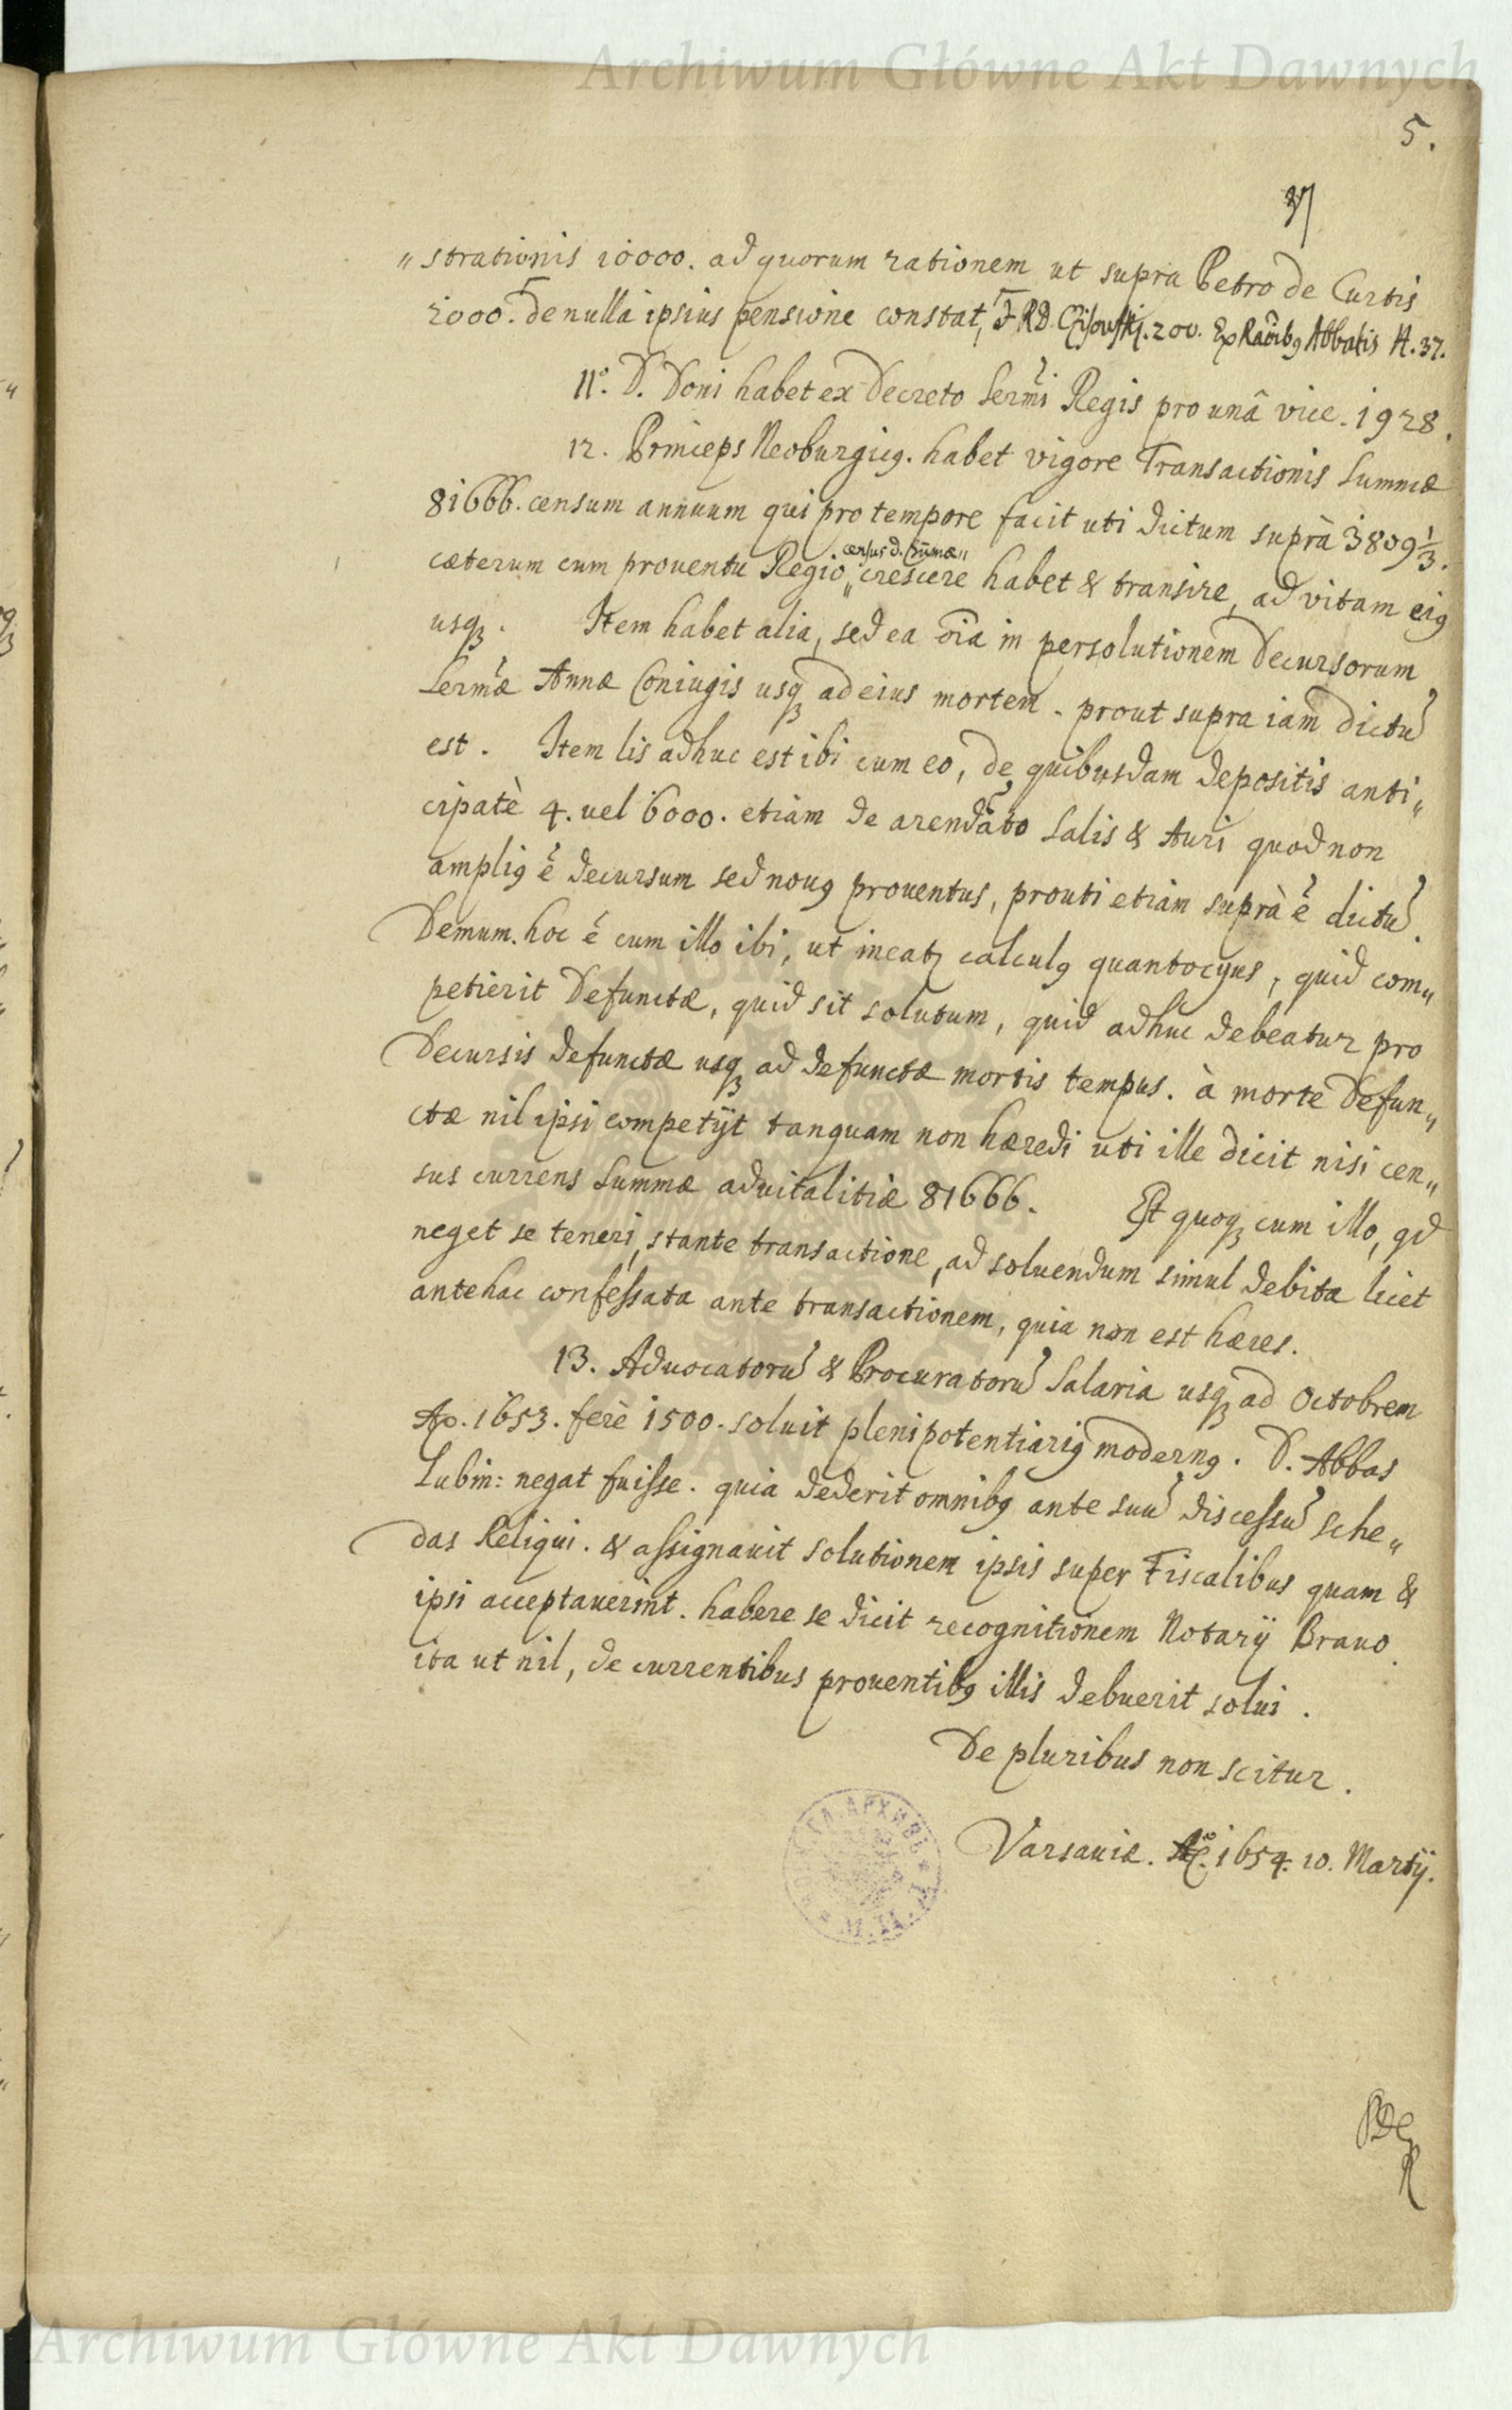 Archiwum Główne Akt Dawnych
5.
„strationis 10000. ad quorum rationem ut supra Petro de Curtis
2000. de nulla ipsius pensione constat, RD. 200. Ex Raõibꝫ Abbatis N. 37.
11º. D. Doni habet ex Decreto Sermi Regis pro unâ vice. 1928.
12. Princeps Neoburgicꝰ. habet vigore Transactionis Summæ
81666. censum annuum qui pro tempore facit uti dictum suprà 3809 1/3.
census d. Sum̃æ„
cæterum cum prouentu Regio „ crescere habet & transire, ad vitam eiꝰ
usqꝫ. Item habet alia, sed ea oĩa in persolutionem Decursorum
Sermæ Annæ Coniugis usqꝫ ad eius mortem. prout supra iam dictũ
est. Item lis adhuc est ibi cum eo, de quibusdam depositis anti„
cipatè 4. vel 6000. etiam de arendato Salis & Auri quod non
ampliꝰ ẽ decursum sed nouꝰ prouentus, prouti etiam suprà ẽ dictũ.
Demum. hoc ẽ cum illo ibi, ut ineatꝛ calculꝰ quantocyus, quid com„
petierit Defunctæ, quid sit solutum, quid adhuc debeatur pro
Decursis defunctæ usqꝫ ad defunctæ mortis tempus. à morte Defun„
ctæ nil ipsi competijt tanquam non hæredi uti ille dicit nisi cen„
sus currens Summæ aduitalitiæ 81666. Est quoqꝫ cum illo, qd
neget se teneri, stante transactione, ad soluendum simul debita licet
antehac confessata ante transactionem, quia non est hæres.
13. Aduocatorũ & Procuratorũ Salaria usqꝫ ad Octobrem
Ao. 1653. ferè 1500. soluit plenipotentiariꝰ modernꝰ. D. Abbas
Lubin: negat fuisse. quia dederit omnibꝰ ante suũ discessũ sche„
das Reliqui. & assignauit solutionem ipsis super Fiscalibus quam &
ipsi acceptauerint. habere se dicit recognitionem Notarij Brauo.
ita ut nil, de currentibus prouentibꝰ illis debuerit solui.
De pluribus non scitur.
Varsauiæ. Aº. 1654. 10. Martij.
Archiwum Główne Akt Dawnych